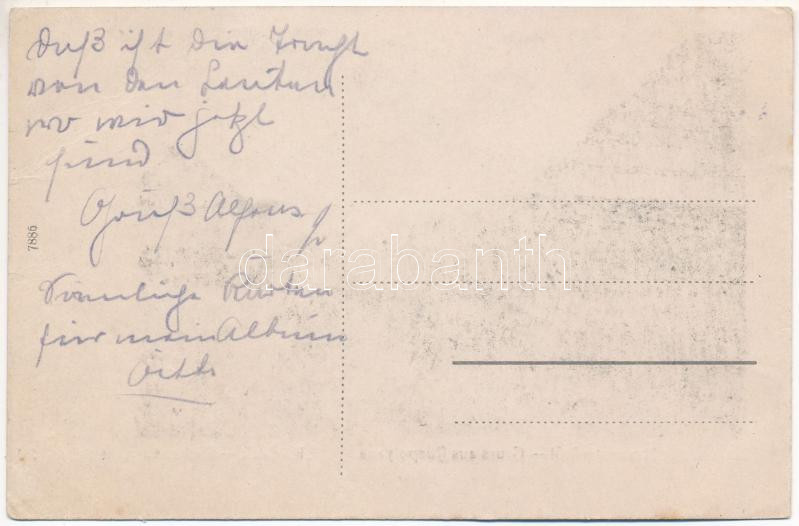 Daß ist die Tracht
von den Leuten
wo wir jetzt
sind
Gruß Alfons
Karten
für mein Album
7886
darabanth